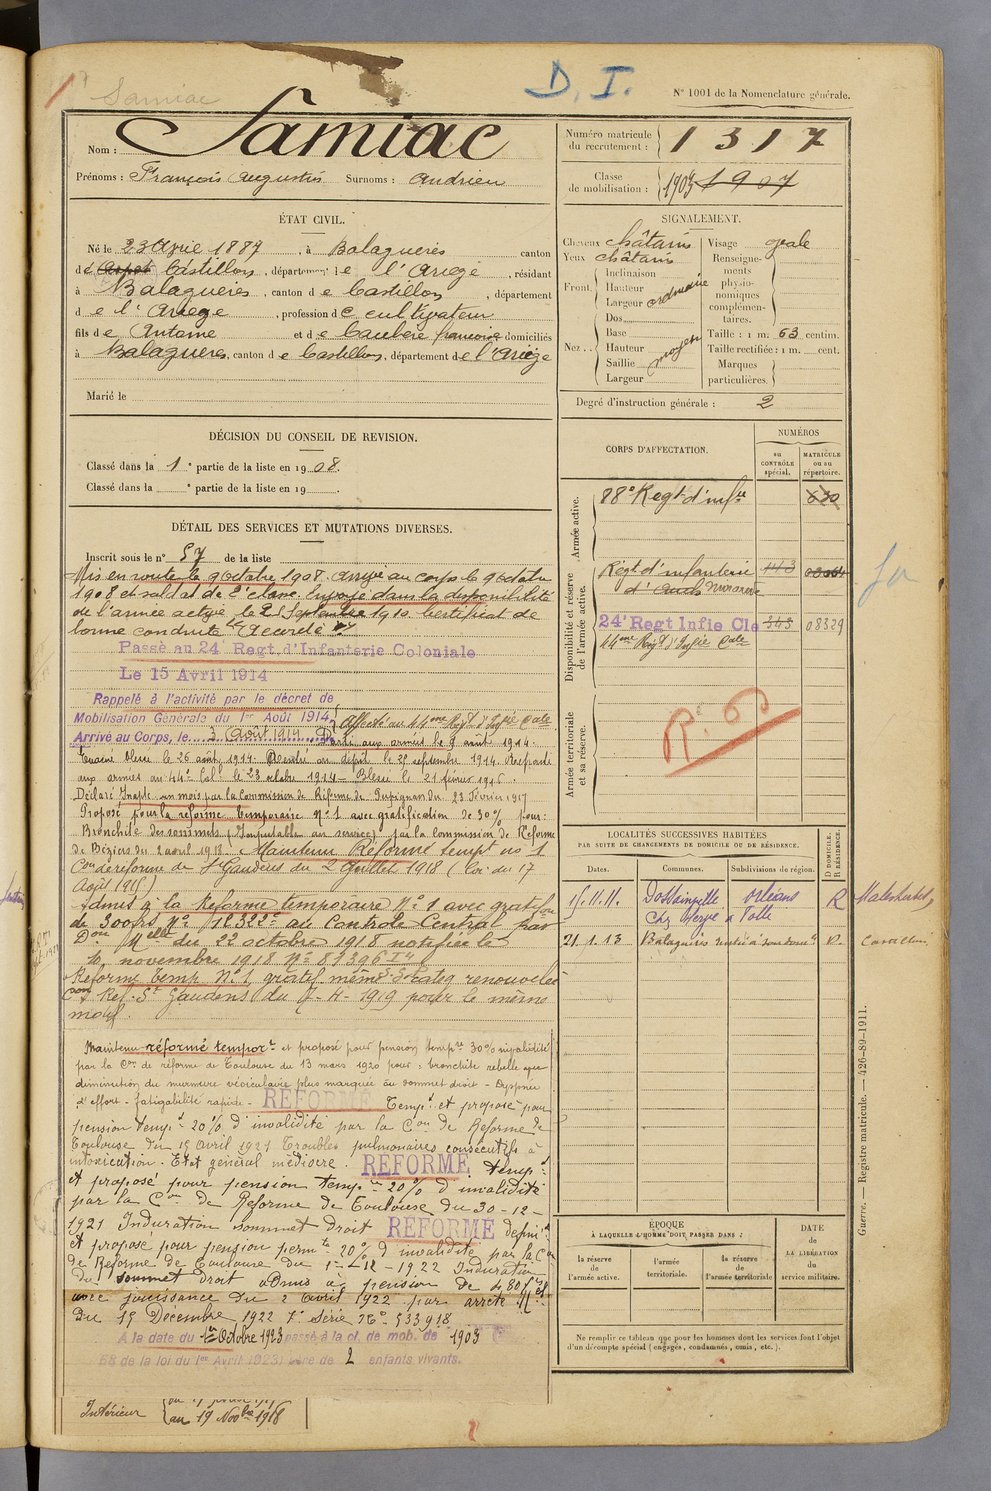 Samiac
D. I.
N° 1001 de la Nomenclature générale.
Nom : Samiac
Prénoms : François Augustin Surnoms : Andrieu
Numéro matricule du recrutement : 1317
Classe de mobilisation : 1903 1907
ÉTAT CIVIL.
Né le 23 Avril 1887, à Balaguères canton
d e Aspet Castillon, département de l'Ariège, résidant
à Balaguères, canton d e Castillon, département
d e l'Ariège, profession d e cultivateur
fils d e Antoine et d e Caubère françoise domiciliés
à Balaguères, canton d e Castillon, département d e l'Ariège
Marié le
SIGNALEMENT.
Cheveux châtains
Yeux châtains
Front. Inclinaison
Hauteur
Largeur ordinaire
Nez.. Dos
Base
Hauteur moyen
Saillie
Largeur
Visage ovale
Renseignements physionomiques complémentaires.
Taille : 1 m. 63 centim.
Taille rectifiée : 1 m. cent.
Marques particulières.
Degré d'instruction générale : 2
DÉCISION DU CONSEIL DE REVISION.
Classé dans la 1e partie de la liste en 1908.
Classé dans la e partie de la liste en 19 .
DÉTAIL DES SERVICES ET MUTATIONS DIVERSES.
Inscrit sous le n° 57 de la liste
Mis en route le 9 octobre 1908. Arrivé au corps le 9 octobre
1908 et soldat de 2e classe. Envoyé dans la disponibilité
de l'armée active le 25 Septembre 1910. Certificat de
bonne conduite Accordé
Passé au 24 Regt. d'Infanterie Coloniale
Le 15 Avril 1914
Rappelé à l'activité par le décret de
Mobilisation Générale du 1er Août 1914. Affecté au 44me Regt d'Infie Cale
Arrivé au Corps, le 3 Août 1914 Parti aux armées le 9 août 1914.
Evacué blessé le 26 août 1914. Rentré au dépôt le 25 septembre 1914. Reparti
aux armées au 44e Col. le 23 octobre 1914 – Blessé le 21 février 1916.
Déclaré Inapte un mois par la Commission de Réforme de Perpignan du 23 Février 1917
Proposé pour la réforme temporaire N° 1 avec gratification de 30% pour:
Bronchite des sommets (Imputable au service) par la Commission de Réforme
de Béziers du 2 avril 1918. Maintenu Réformé tempre n° 1
Con de réforme de St Gaudens du 2 Juillet 1918 (loi du 17
Août 1915)
Admis à la Réforme temporaire N° 1 avec gratifon
de 300frs N° 12322e au Contrôle Central par
Don Melle du 22 octobre 1918 notifiée le
10 novembre 1918 N° 81396
Réforme Temp. N° 1, gratif même catég renouvelée
Con Ref. St Gaudens du 7-4-1919 pour le même
motif.
Maintenu réformé tempore et proposé pour pension tempre 30% invalidité
par la Con de réforme de Toulouse du 13 mars 1920 pour : bronchite rebelle avec
diminution du murmure vésiculaire plus marquée au sommet droit - Dyspnée
d'effort - fatigabilité rapide - REFORME Temp. et proposé pour
pension tempre 20% d'invalidité par la Con de Réforme de
Toulouse du 15 Avril 1921 Troubles pulmonaires consécutifs à
intoxication. Etat général médiocre. REFORME temp.
et proposé pour pension tempre 20% d'invalidité
par la Con de Réforme de Toulouse du 30-12-
1921 Induration sommet droit REFORME défini
et proposé pour pension permte 20% d'invalidité par la Con
de Réforme de Toulouse du 1-12-1922 Induration
du sommet droit admis à pension de 480f
avec jouissance du 2 Avril 1922 par arrêté Mel
du 15 Décembre 1922 1e Série N° 533918
A la date du 1er Octobre 1923 passé à la cl. de mob. de 1903
58 de la loi du 1er Avril 1923) père de 2 enfants vivants.
Intérieur
au 19 Novbre 1918
CORPS D'AFFECTATION.
NUMÉROS
au CONTRÔLE spécial.
MATRICULE ou au répertoire.
Armée active.
88e Regt d'infie
Disponibilité et réserve de l'armée active.
Régt d'infanterie 143
d' Mirande
24e Regt Infie Cle 343 08329
44me Regt d'Infie Cale
Armée territoriale et sa réserve.
R. 60
LOCALITÉS SUCCESSIVES HABITÉES
PAR SUITE DE CHANGEMENTS DE DOMICILE OU DE RÉSIDENCE.
Dates. Communes. Subdivisions de région.
D DOMICILE. R RÉSIDENCE.
15.11.11. Dossainville Orléans R Malesherbes
21.1.13 Balaguères D. Castillon
ÉPOQUE
À LAQUELLE L'HOMME DOIT PASSER DANS :
la réserve de l'armée active.
l'armée territoriale.
la réserve de l'armée territoriale
DATE de LA LIBÉRATION du service militaire.
Ne remplir ce tableau que pour les hommes dont les services font l'objet
d'un décompte spécial (engagés, condamnés, omis, etc.).
Guerre. — Registre matricule. — 426-89-1911.